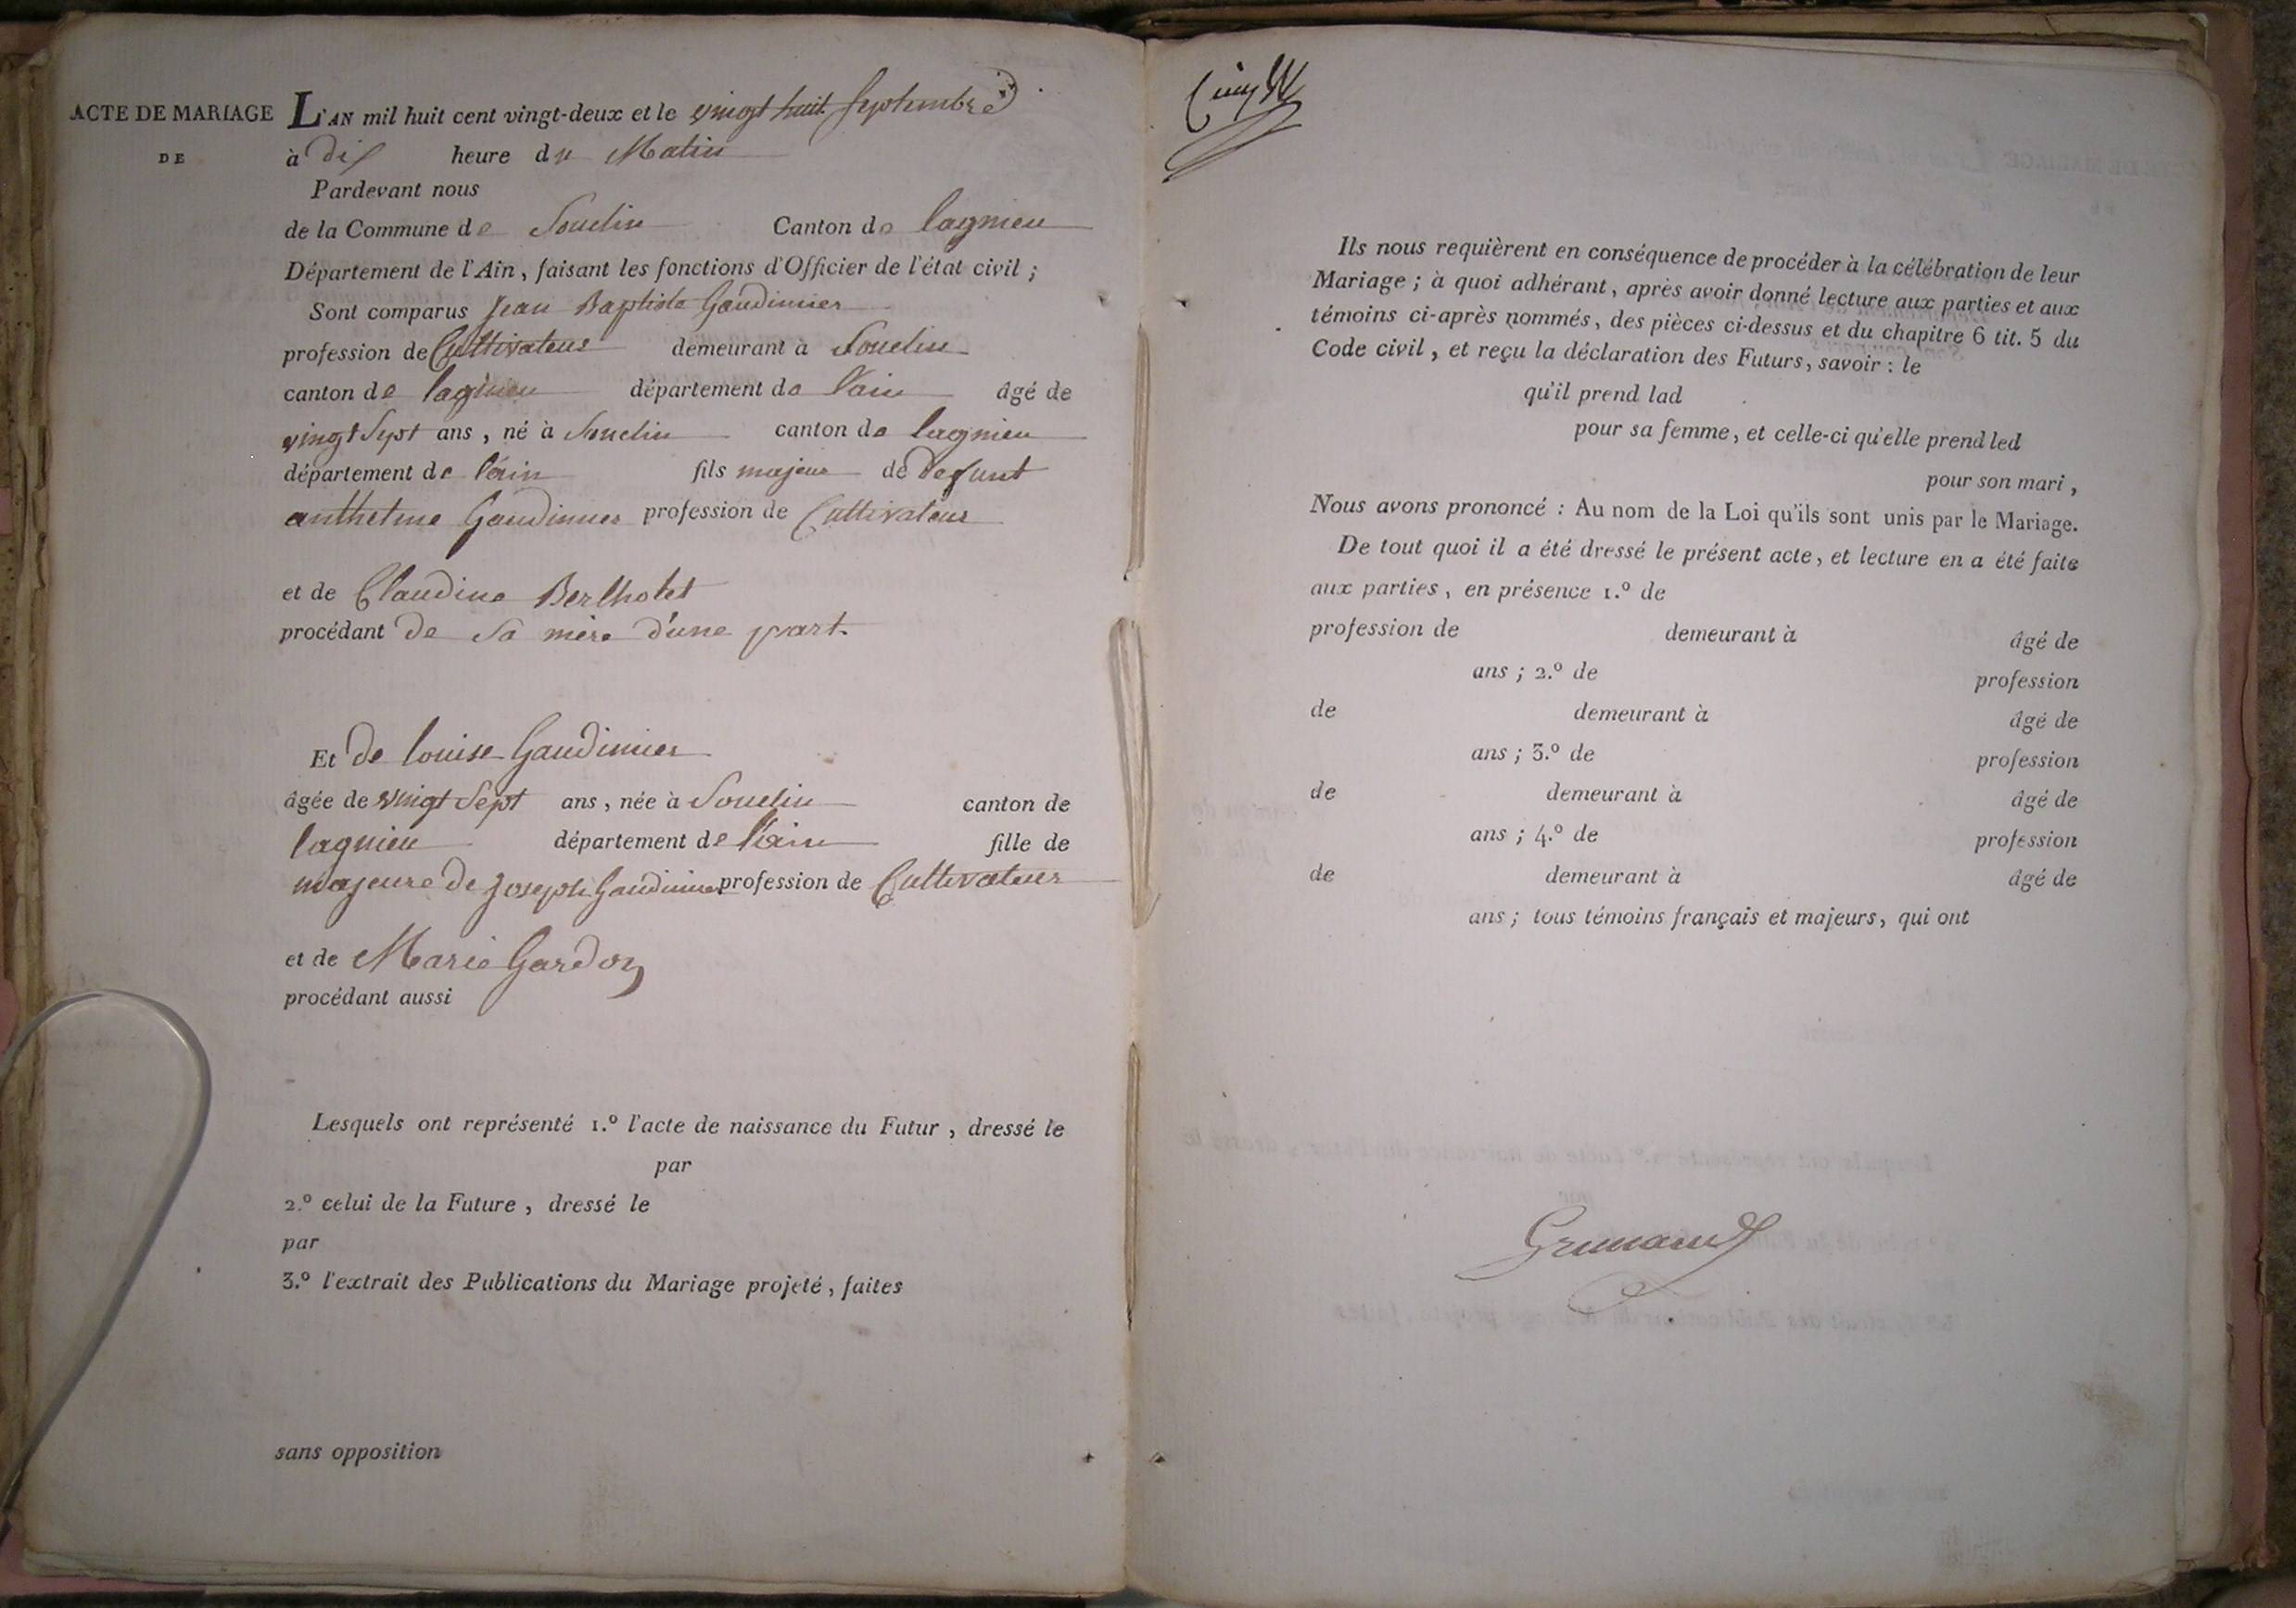 ACTE DE MARIAGE
DE
L'AN mil huit cent vingt-deux et le vingt huit Septembre
à dix heure du Matin
Pardevant nous
de la Commune de Souclin Canton de lagnieu
Département de l'Ain, faisant les fonctions d'Officier de l'état civil ;
Sont comparus Jean Baptiste Gaudinier
profession de Cultivateur demeurant à Souclin
canton de lagnieu département de l'ain âgé de
vingt Sept ans, né à Souclin canton de lagnieu
département de l'ain fils majeur de defunt
anthelme Gaudinier profession de Cultivateur
et de Claudine Berthotet
procédant de Sa mère d'une part.
Et de louise Gaudinier
âgée de vingt Sept ans, née à Souclin canton de
lagnieu département de l'ain fille de
majeure de Joseph Gaudinier profession de Cultivateur
et de Marie Gardon
procédant aussi
Lesquels ont représenté 1.º l'acte de naissance du Futur, dressé le
par
2.º celui de la Future, dressé le
par
3.º l'extrait des Publications du Mariage projeté, faites
sans opposition
Ils nous requièrent en conséquence de procéder à la célébration de leur
Mariage ; à quoi adhérant, après avoir donné lecture aux parties et aux
témoins ci-après nommés, des pièces ci-dessus et du chapitre 6 tit. 5 du
Code civil, et reçu la déclaration des Futurs, savoir : le
qu'il prend lad
pour sa femme, et celle-ci qu'elle prend led
pour son mari,
Nous avons prononcé : Au nom de la Loi qu'ils sont unis par le Mariage.
De tout quoi il a été dressé le présent acte, et lecture en a été faite
aux parties, en présence 1.º de
profession de demeurant à âgé de
ans ; 2.º de profession
de demeurant à âgé de
ans ; 3.º de profession
de demeurant à âgé de
ans ; 4.º de profession
de demeurant à âgé de
ans ; tous témoins français et majeurs, qui ont